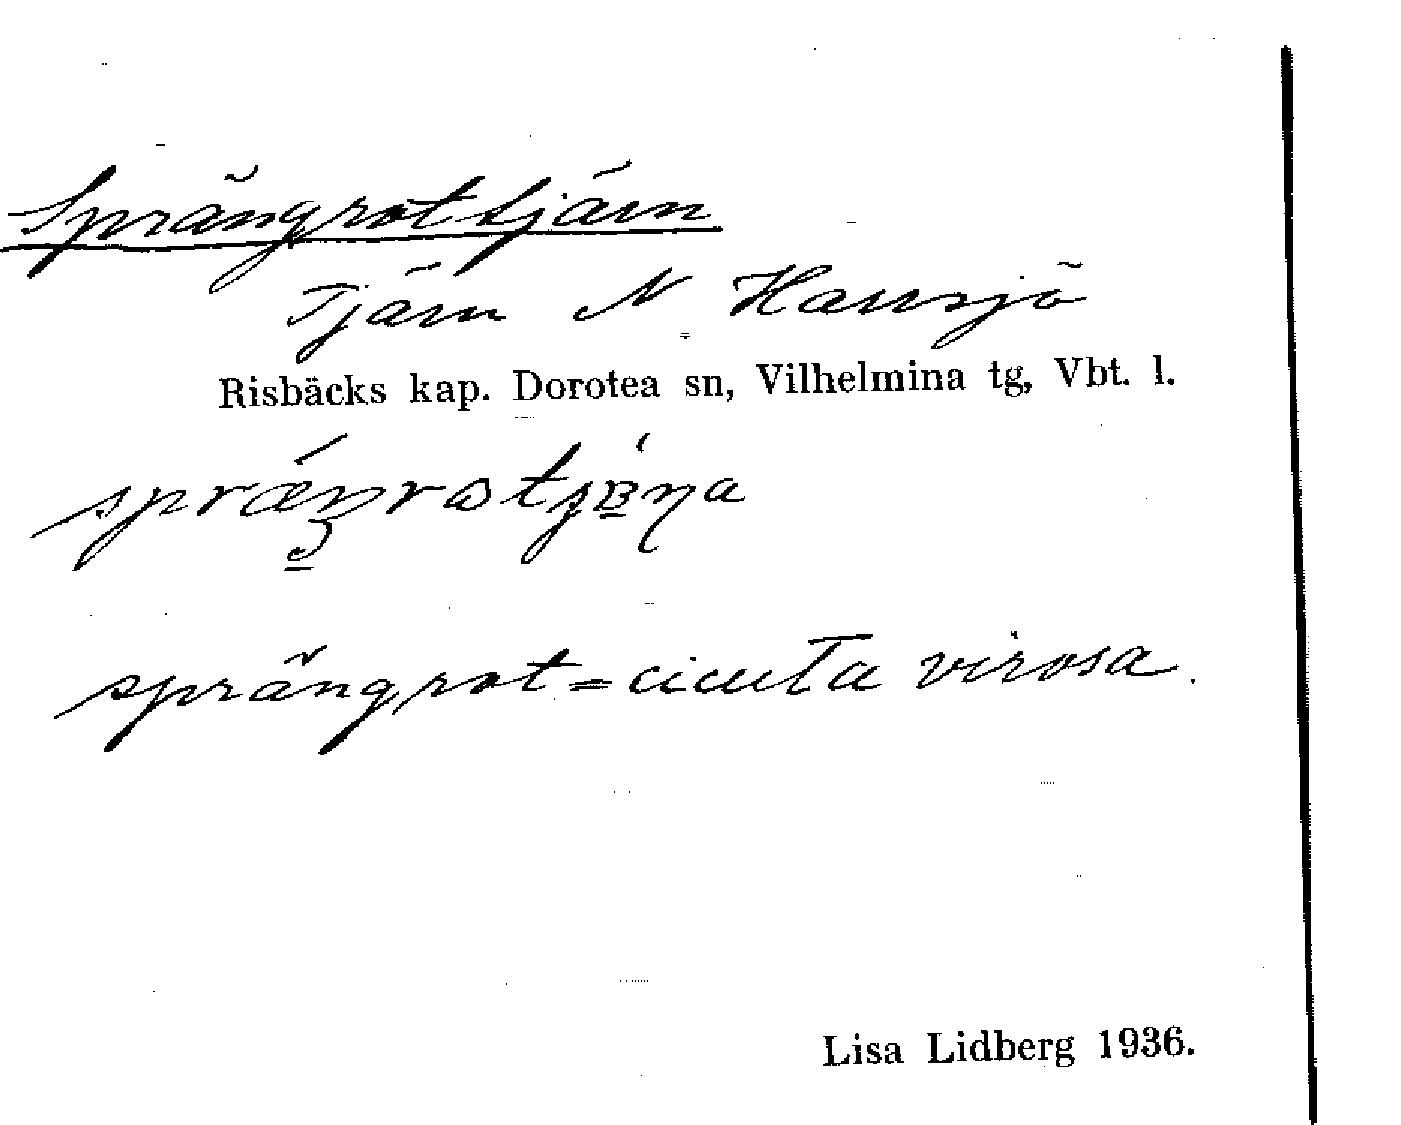 Sprängrottjärn
Tjärn N Hansjö
Risbäcks kap. Dorotea sn, Vilhelmina tg, Vbt. l.
sprängrot = cicuta virosa.
Lisa Lidberg 1936.